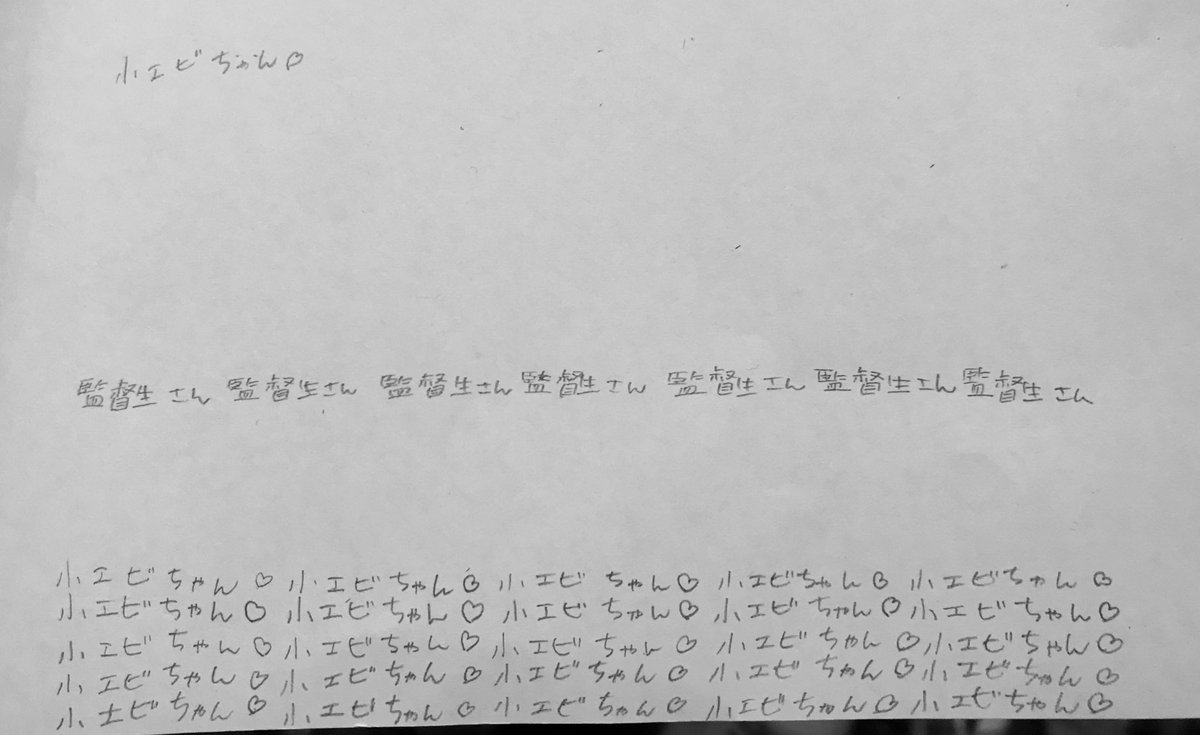 小エビちゃん♡
監督生さん 監督生さん 監督生さん 監督生さん 監督生さん 監督生さん 監督生さん
小エビちゃん♡ 小エビちゃん♡ 小エビちゃん♡ 小エビちゃん♡ 小エビちゃん♡
小エビちゃん♡ 小エビちゃん♡ 小エビちゃん♡ 小エビちゃん♡ 小エビちゃん♡
小エビちゃん♡ 小エビちゃん♡ 小エビちゃん♡ 小エビちゃん♡ 小エビちゃん♡
小エビちゃん♡ 小エビちゃん♡ 小エビちゃん♡ 小エビちゃん♡ 小エビちゃん♡
小エビちゃん♡ 小エビちゃん♡ 小エビちゃん♡ 小エビちゃん♡ 小エビちゃん♡